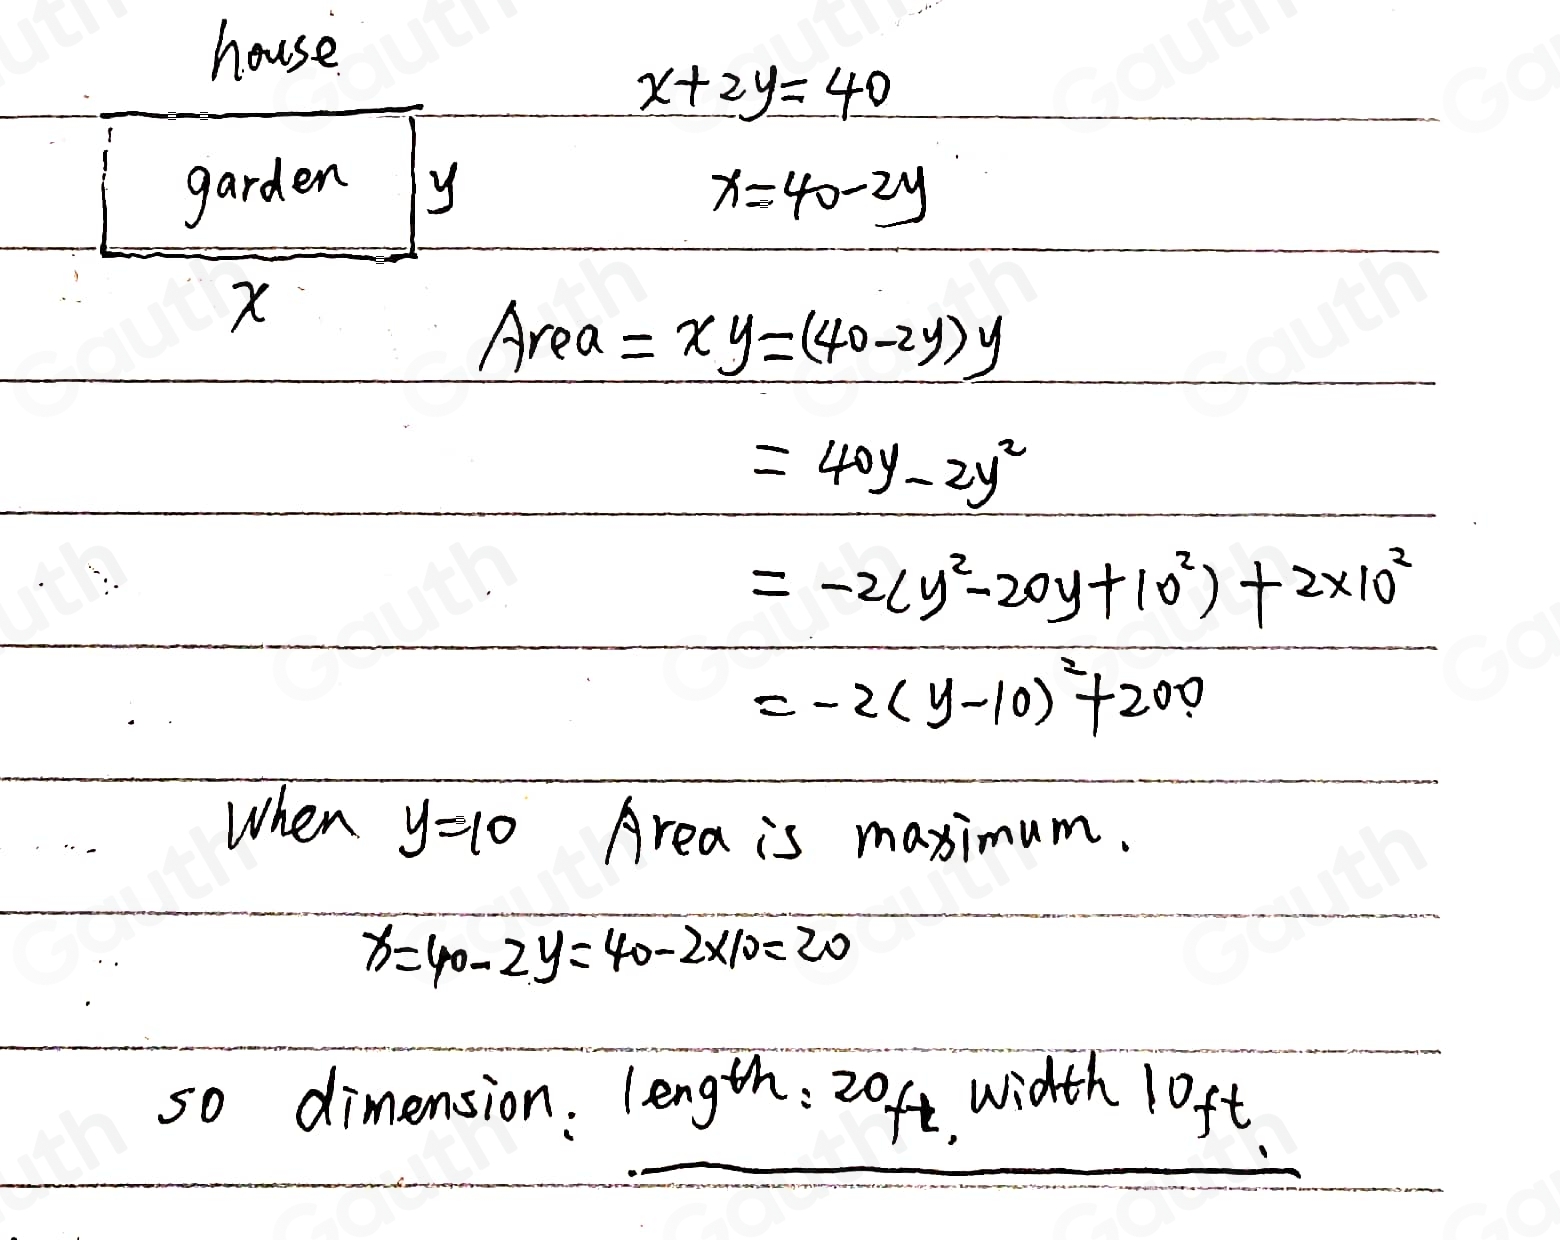 house
x+2y=40
garden y
x=40-2y
x
Area = xy=(40-2y)y
= 40y-2y²
= -2(y²-20y+10²)+2×10²
= -2(y-10)²+200
When y=10 Area is maximum.
x=40-2y=40-2×10=20
so dimension: length: 20ft, width 10ft.